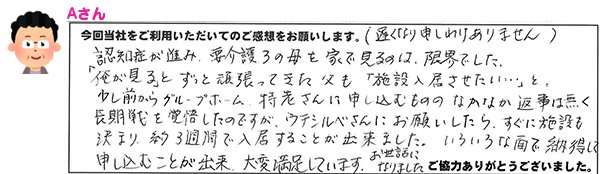 Aさん
今回当社をご利用いただいてのご感想をお願いします。(遅くなり申しわけありません)
認知症が進み、要介護3の母を家で見るのは、限界でした。
「俺が見る」とずっと頑張ってきた父も「施設入居させたい…」と。
少し前からグループホーム、特老さんに申し込むもののなかなか返事は無く
長期戦を覚悟したのですが、ウチシルベさんにお願いしたら、すぐに施設も
決まり、約3週間で入居することが出来ました。いろいろな面で納得して
申し込むことが出来、大変満足しています。お世話になりました
ご協力ありがとうございました。